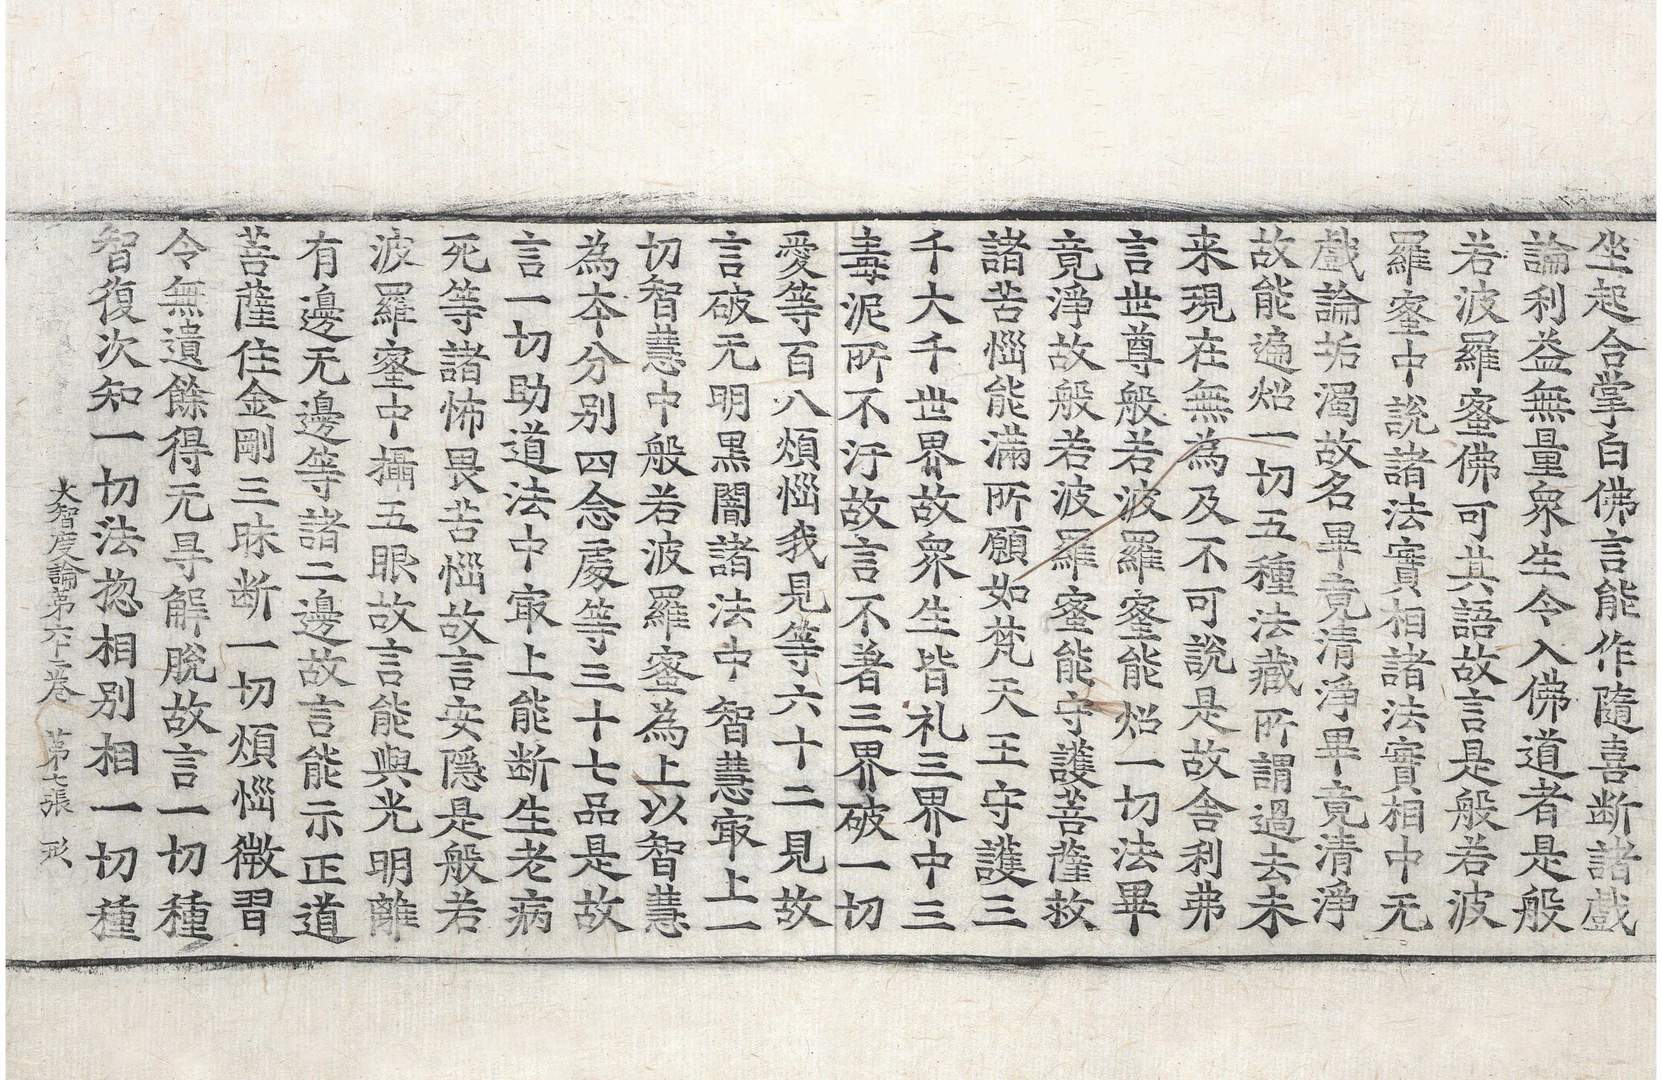 坐起合掌白佛言能作隨喜断諸戲
論利益無量衆生令入佛道者是般
若波羅蜜佛可其語故言是般若波
羅蜜中說諸法實相諸法實相中无
戲論垢濁故名畢竟清淨畢竟清淨
故能遍炤一切五種法藏所謂過去未
来現在無為及不可說是故舍利弗
言世尊般若波羅蜜能炤一切法畢
竟淨故般若波羅蜜能守護菩薩救
諸苦惱能滿所願如梵天王守護三
千大千世界故衆生皆礼三界中三
毒泥所不汙故言不著三界破一切
愛等百八煩惱我見等六十二見故
言破无明黑闇諸法中智慧㝡上一
切智慧中般若波羅蜜為上以智慧
為本分別四念處等三十七品是故
言一切助道法中㝡上能断生老病
死等諸怖畏苦惱故言安隱是般若
波羅蜜中攝五眼故言能與光明離
有邊无邊等諸二邊故言能示正道
菩薩住金剛三昧断一切煩惱微習
令無遺餘得无㝵解脫故言一切種
智復次知一切法惣相別相一切種
大智度論第六十二卷 第七張 形